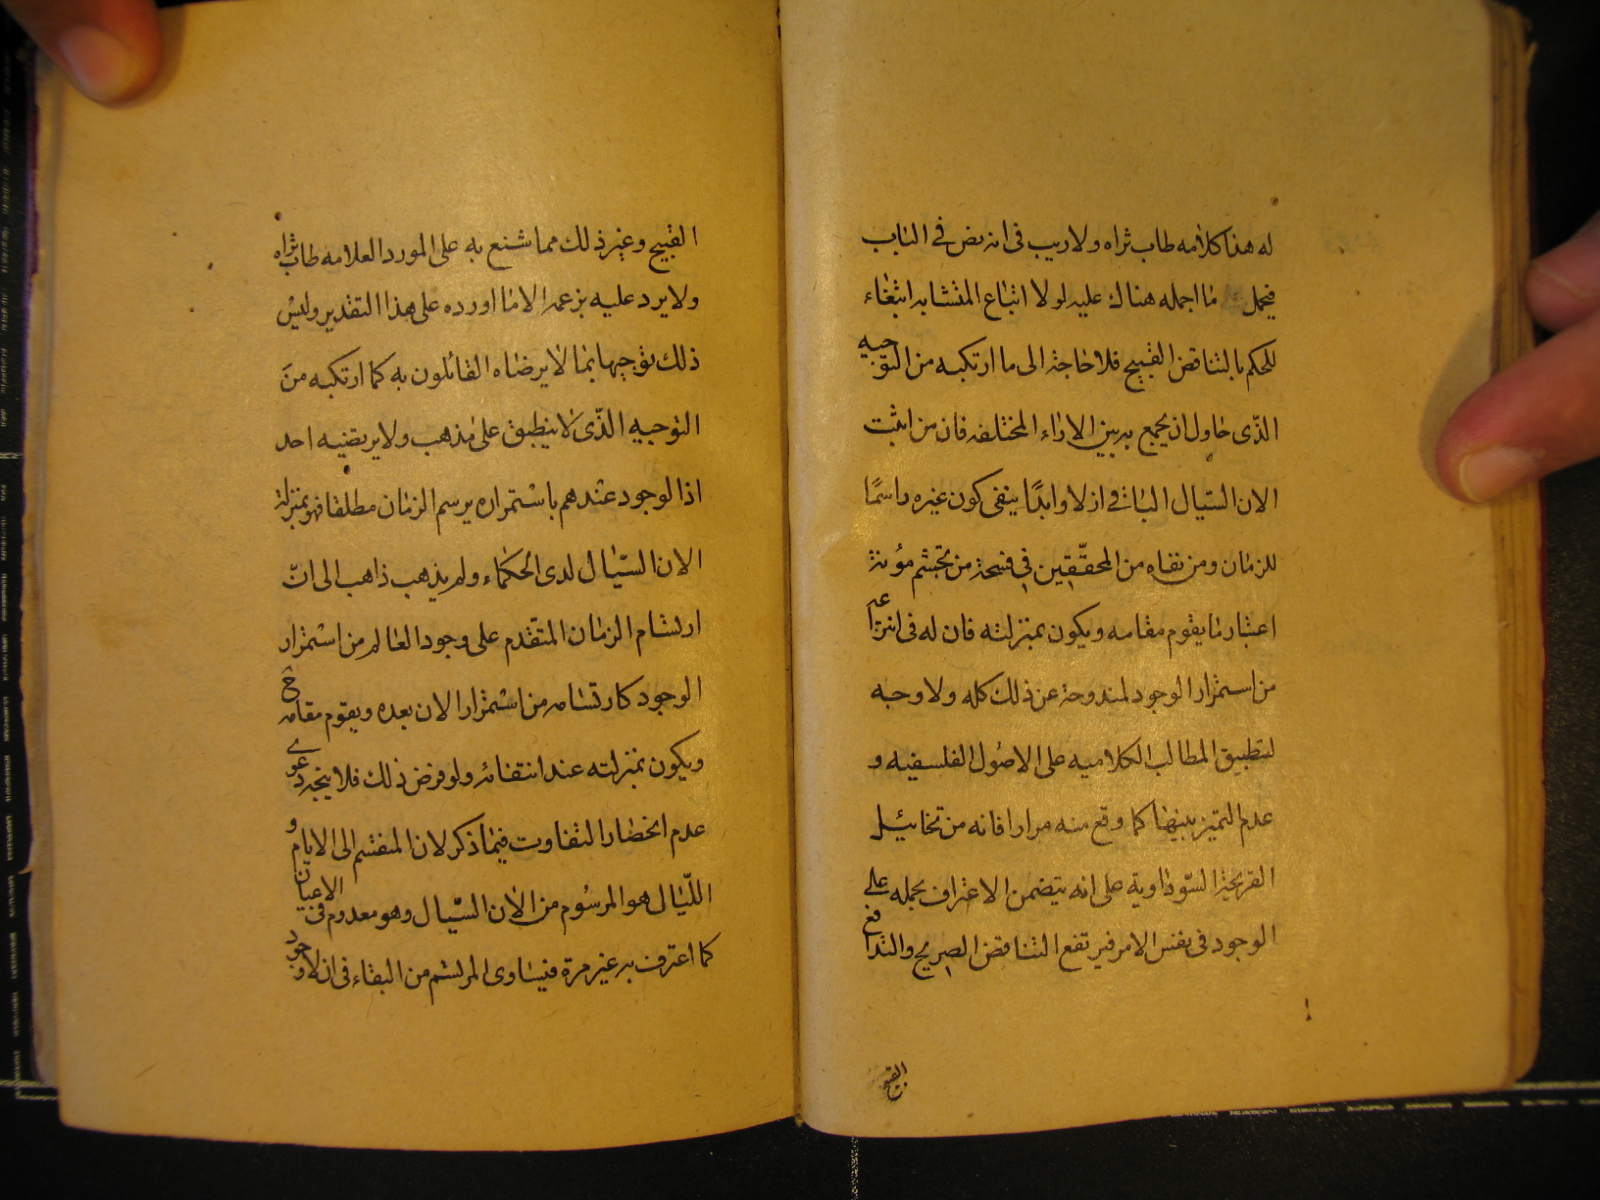 له هذا كلامه طاب ثراه ولا ريب فى انه نص فى الباب
فيحمل ما اجمله هناك عليه لولا اتباع المتشابه ابتغاء
للحكم بالتناقض القبيح فلا حاجة الى ما ارتكبه من التوجيه
الذى حاول ان يجمع به بين الاراء المختلفه فان من اثبت
الان السيال الباقى ازلا وابدًا ينفى كون غيره راسمًا
للزمان ومن نفاه من المحققين فى فسحة من تجشم مؤنة
اعتبار ما يقوم مقامه ويكون بمنزلته فان له فى انتزاعه
من استمرار الوجود لمندوحة عن ذلك كله ولا وجه
لتطبيق المطالب الكلاميه على الاصول الفلسفيه و
عدم التميز بينهما كما وقع منه مرارا فانه من تخائيل
القريحة السوداوية على انه يتضمن الاعتراف بجمله على
الوجود فى نفس الامر فيرتفع التناقض الصريح والتدافع
القبيح
القبيح وغير ذلك مما شنع به على المورد العلامه طاب ثراه
ولا يرد عليه بزعمه الا ما اورده على هذا التقدير وليس
ذلك توجيها بما لا يرضاه القائلون به كما ارتكبه من
التوجيه الذى لا ينطبق على مذهب ولا يرتضيه احد
اذ الوجود عندهم باستمراره يرسم الزمان مطلقا فهو بمنزلة
الان السيال لدى الحكماء ولم يذهب ذاهب الى ان
ارتسام الزمان المتقدم على وجود العالم من استمرار
الوجود كارتسامه من استمرار الان بعده ويقوم مقامه ح
ويكون بمنزلته عند انتفائه ولو فرض ذلك فلا يتجه دعوى
عدم انحصار التفاوت فيما ذكر لان المنقسم الى الايام و
الليال هو المرسوم من الان السيال وهو معدوم فى الاعيان
كما اعترف به غير مرة فيساوى المرتسم من البقاء فى ان لا وجود